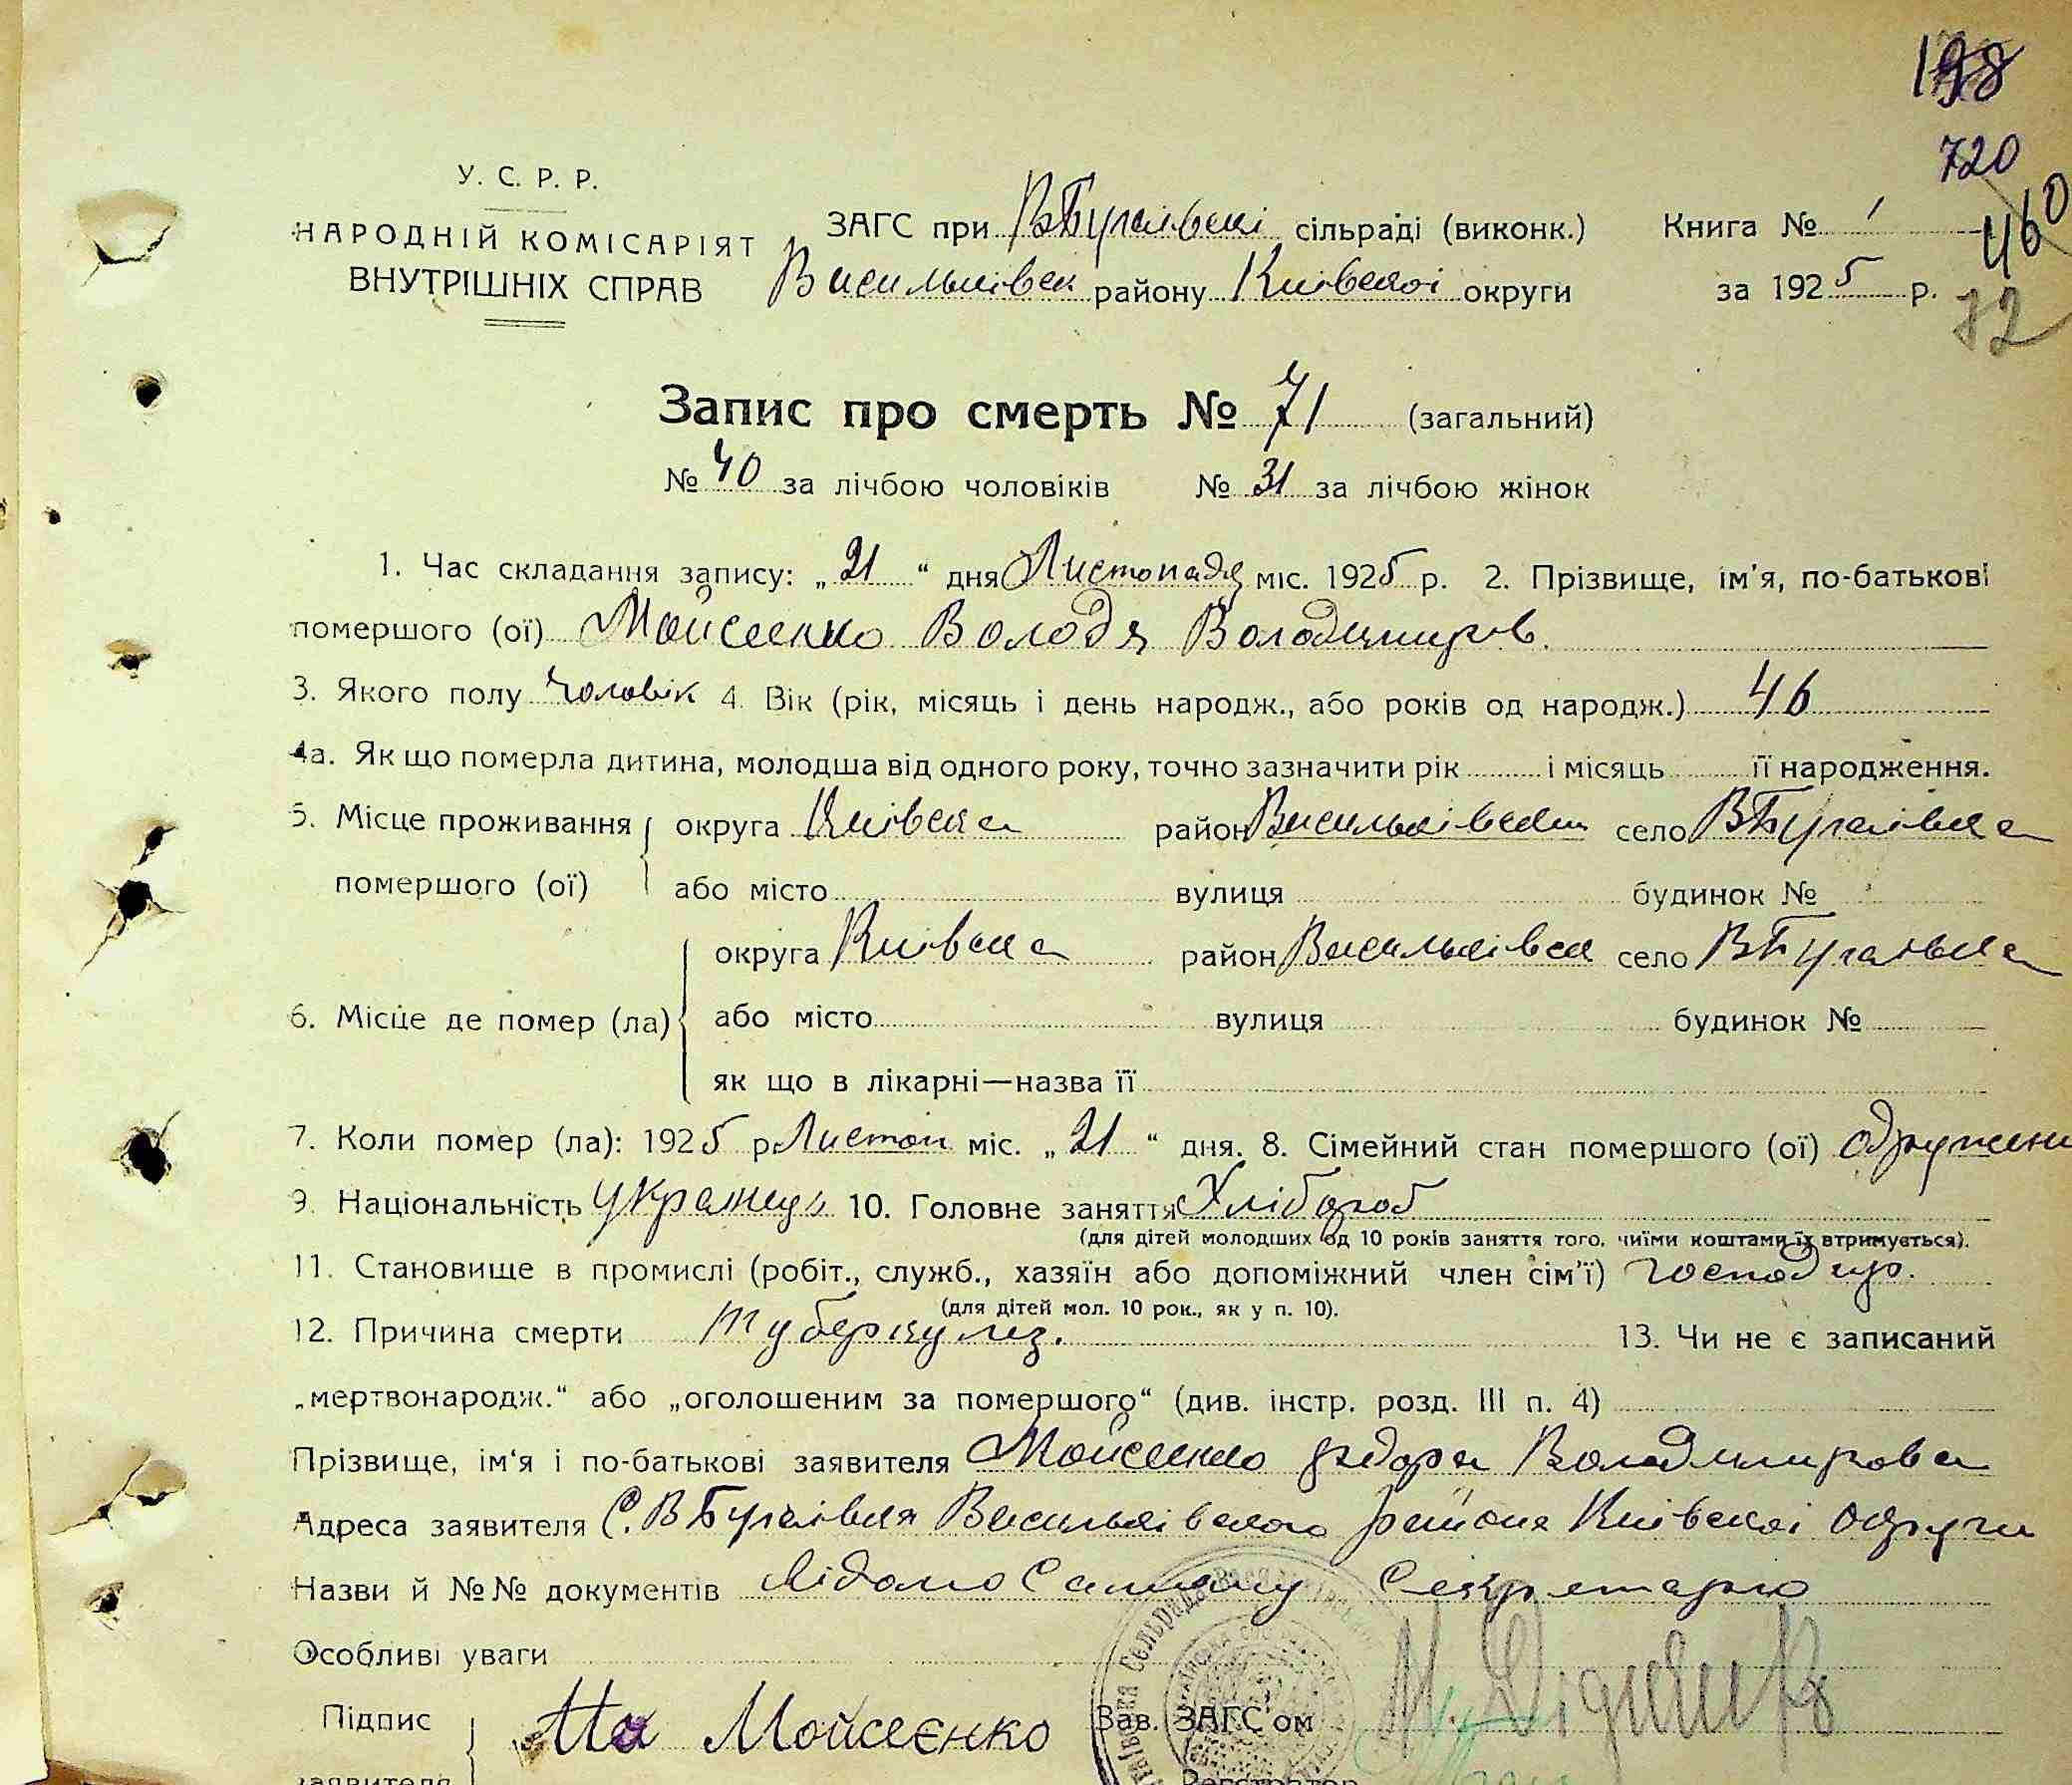 198
720
460
72
У. С. Р. Р.
НАРОДНІЙ КОМІСАРІЯТ
ВНУТРІШНІХ СПРАВ
ЗАГС при ВБугаївскі сільраді (виконк.) Книга № 1
Васильківск району Київскої округи за 1925 р.
Запис про смерть № 71 (загальний)
№ 40 за лічбою чоловіків № 31 за лічбою жінок
1. Час складання запису: „21“ дня Листопадя міс. 1925 р. 2. Прізвище, ім'я, по-батькові
помершого (ої) Мойсеенко Володя Володимиров.
3. Якого полу чоловік 4. Вік (рік, місяць і день народж., або років од народж.) 46
4а. Як що померла дитина, молодша від одного року, точно зазначити рік і місяць її народження.
5. Місце проживання округа Київска район Васильківский село ВБугаївка
помершого (ої) або місто вулиця будинок №
округа Київска район Васильківск село ВБугаівка
6. Місце де помер (ла) або місто вулиця будинок №
як що в лікарні—назва її
7. Коли помер (ла): 1925 р. Листоп міс. „21“ дня. 8. Сімейний стан помершого (ої) одружени
9. Національність Украінець 10. Головне заняття Хлібороб
(для дітей молодших од 10 років заняття того, чиїми коштами їх втримується).
11. Становище в промислі (робіт., служб., хазяїн або допоміжний член сім'ї) господар.
(для дітей мол. 10 рок., як у п. 10).
12. Причина смерти туберкульз. 13. Чи не є записаний
„мертвонародж.“ або „оголошеним за помершого“ (див. інстр. розд. III п. 4)
Прізвище, ім'я і по-батькові заявителя Мойсеенко Федора Володимирова
Адреса заявителя С. ВБугаівка Васильківского района Київскоі округи
Назви й №№ документів Відомо Самому Секретарю
Особливі уваги
Підпис Мойсеєнко Зав. ЗАГС'ом
заявителя Реєстратор